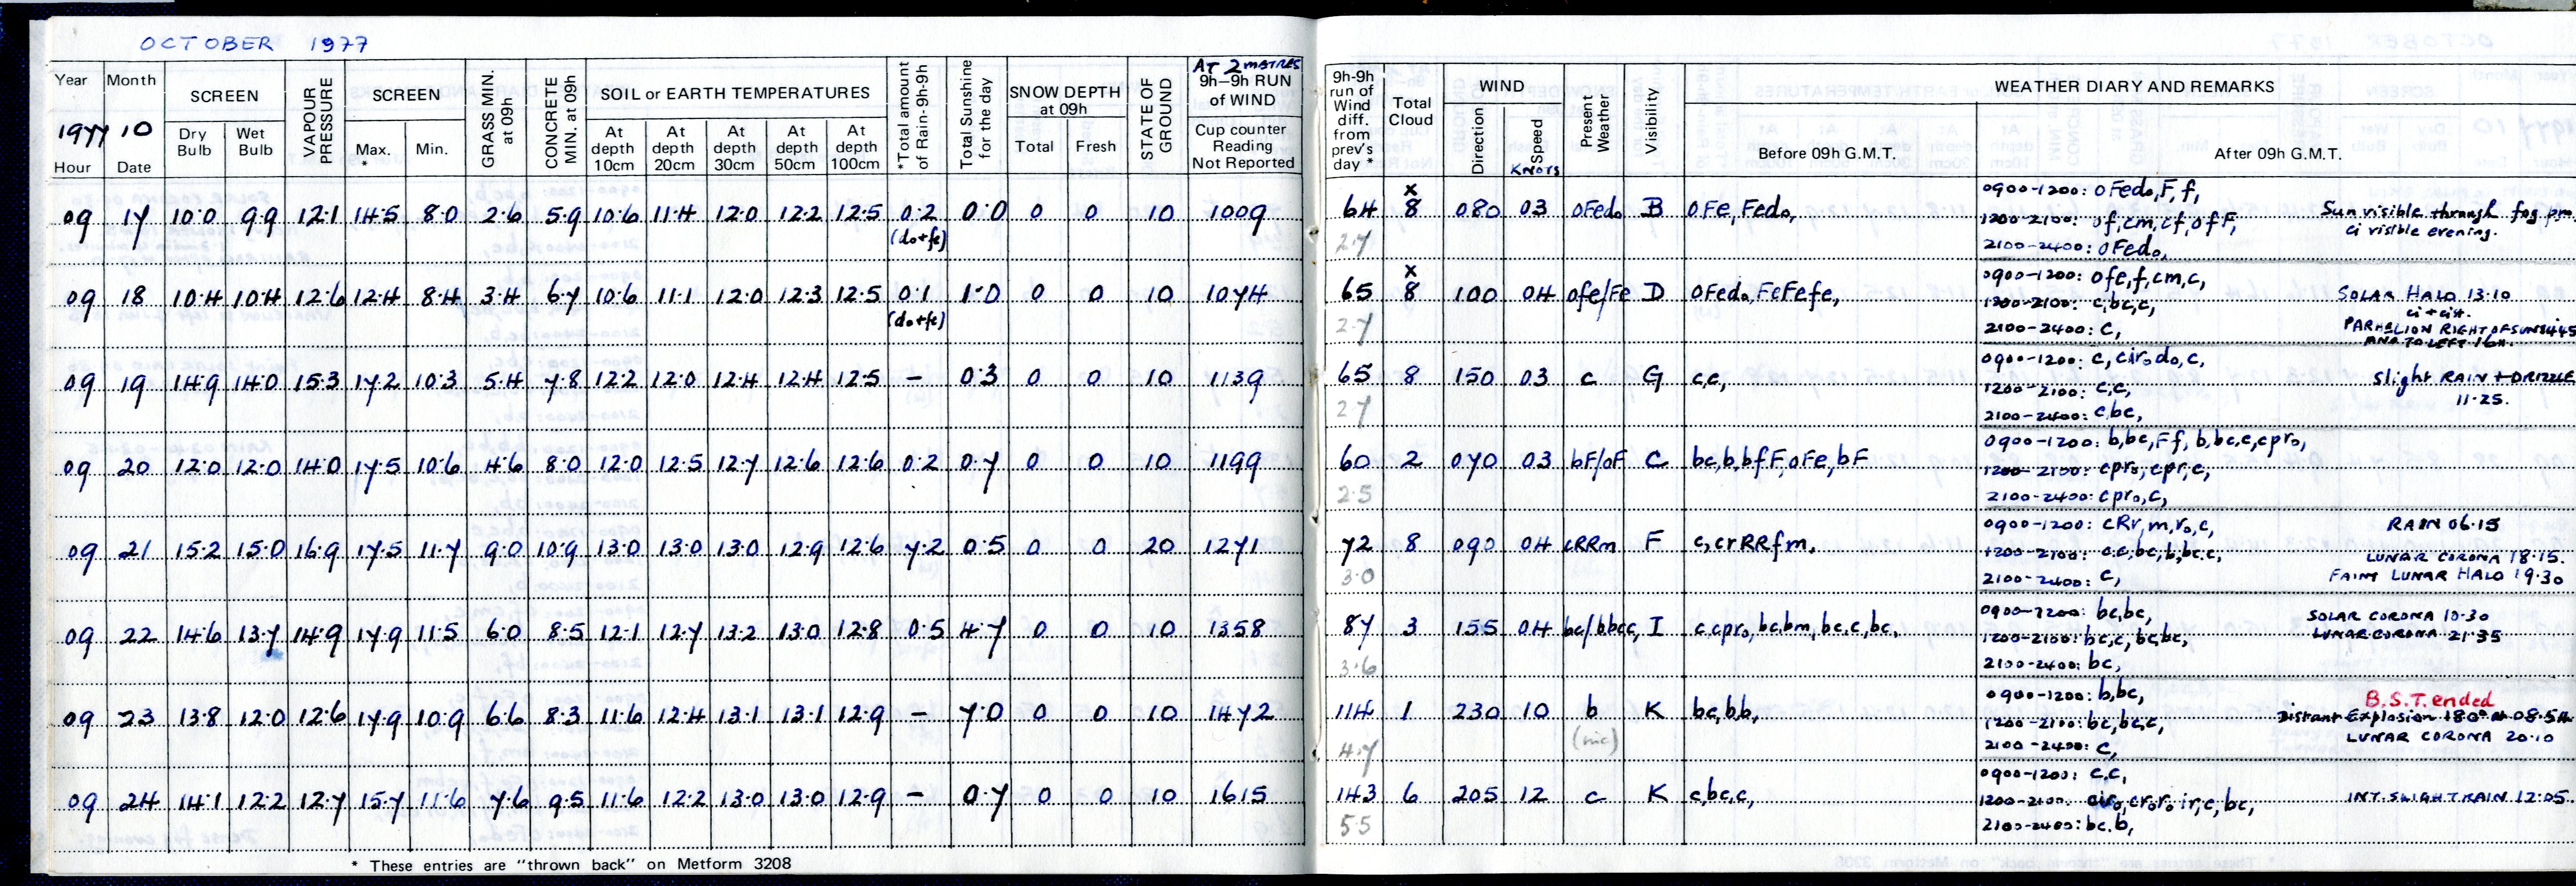 OCTOBER 1977
Year Month SCREEN VAPOUR PRESSURE SCREEN GRASS MIN. at 09h CONCRETE MIN. at 09h SOIL or EARTH TEMPERATURES *Total amount of Rain-9h-9h Total Sunshine for the day SNOW DEPTH at 09h STATE OF GROUND AT 2 METRES 9h–9h RUN of WIND 9h-9h run of Wind diff. from prev's day * Total Cloud WIND Present Weather Visibility WEATHER DIARY AND REMARKS
1977 10 Dry Bulb Wet Bulb Max. * Min. At depth 10cm At depth 20cm At depth 30cm At depth 50cm At depth 100cm Total Fresh Cup counter Reading Not Reported Direction Speed KNOTS Before 09h G.M.T. After 09h G.M.T.
Hour Date
09 17 10.0 9.9 12.1 14.5 8.0 2.6 5.9 10.6 11.4 12.0 12.2 12.5 0.2 (do+fe) 0.0 0 0 10 1009 64 2.7 x 8 080 03 oFedo B oFe, Fedo,
0900-1200: oFedo, F, f,
1200-2100: of, cm, cf, ofF,
2100-2400: oFedo,
Sun visible through fog pm.
ci visible evening.
09 18 10.4 10.4 12.6 12.4 8.4 3.4 6.7 10.6 11.1 12.0 12.3 12.5 0.1 (do+fe) 1.0 0 0 10 1074 65 2.7 x 8 100 04 ofe/Fe D oFedo, FeFefe,
0900-1200: ofe, f, cm, c,
1200-2100: c, bc, c,
2100-2400: c,
SOLAR HALO 13.10
ci + cist.
PARHELION RIGHT OF SUN 1445
AND TO LEFT 16H.
09 19 14.9 14.0 15.3 17.2 10.3 5.4 7.8 12.2 12.0 12.4 12.4 12.5 – 0.3 0 0 10 1139 65 2.7 8 150 03 c G c,c,
0900-1200: c, ciro do, c,
1200-2100: c,c,
2100-2400: c,bc,
Slight RAIN + DRIZZLE
11.25.
09 20 12.0 12.0 14.0 17.5 10.6 4.6 8.0 12.0 12.5 12.7 12.6 12.6 0.2 0.7 0 0 10 1199 60 2.5 2 070 03 bF/oF C bc,b,bfF,oFe,bF
0900-1200: b,bc,Ff, b,bc,c,cpro,
1200-2100: cpro, cpr, c,
2100-2400: cpro,c,
09 21 15.2 15.0 16.9 17.5 11.7 9.0 10.9 13.0 13.0 13.0 12.9 12.6 7.2 0.5 0 0 20 1271 72 3.0 8 090 04 cRRm F c, crRRfm,
0900-1200: cRr, m, ro, c,
1200-2100: c,c,bc,b,bc,c,
2100-2400: c,
RAIN 06.15
LUNAR CORONA 18.15.
FAINT LUNAR HALO 19.30
09 22 14.6 13.7 14.9 17.9 11.5 6.0 8.5 12.1 12.7 13.2 13.0 12.8 0.5 4.7 0 0 10 1358 87 3.6 3 155 04 bc/bbcc, I c,cpro, bc,bm, bc,c,bc,
0900-1200: bc,bc,
1200-2100: bc,c, bc,bc,
2100-2400: bc,
SOLAR CORONA 10.30
LUNAR CORONA 21.35
09 23 13.8 12.0 12.6 17.9 10.9 6.6 8.3 11.6 12.4 13.1 13.1 12.9 – 7.0 0 0 10 1472 114 4.7 1 230 10 b K bc,b,b,
0900-1200: b,bc,
1200-2100: bc,bc,c,
2100-2400: c,
B.S.T. ended
Distant Explosion 180° at 08.54
LUNAR CORONA 20.10
09 24 14.1 12.2 12.7 15.7 11.6 7.6 9.5 11.6 12.2 13.0 13.0 12.9 – 0.7 0 0 10 1615 143 5.5 6 205 12 c K c,bc,c,
0900-1200: c,c,
1200-2100: ciro, cr,oro ir,c, bc,
2100-2400: bc,b,
INT. SLIGHT RAIN 12.05.
* These entries are "thrown back" on Metform 3208